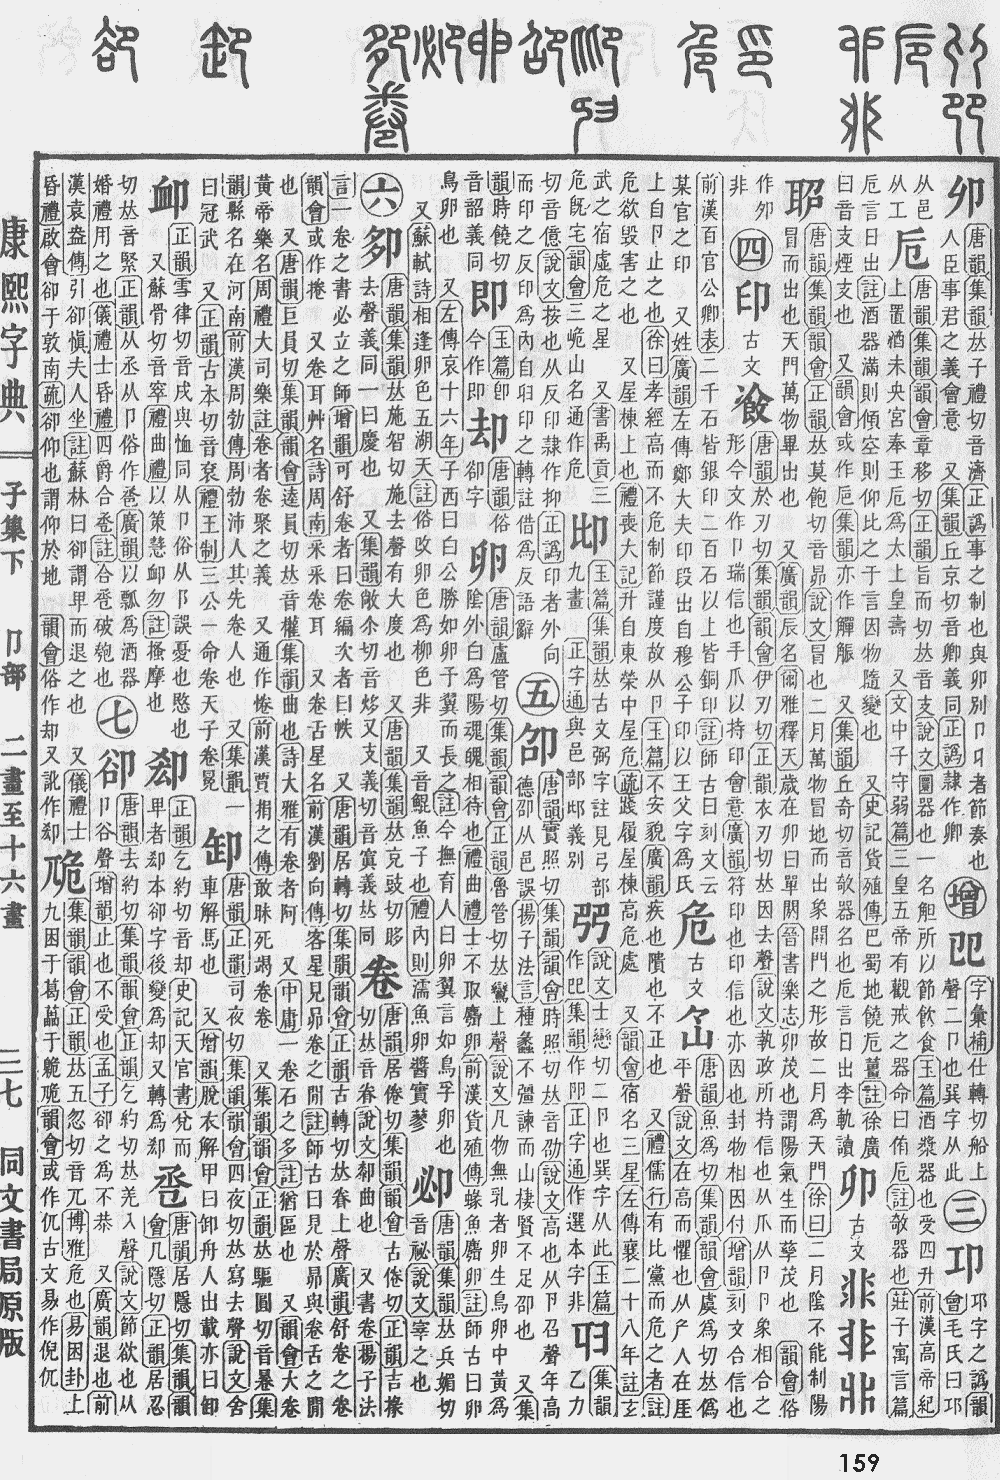 康熙字典 子集下 卩部 二畫至十六畫 三七 同文書局原版
卯 唐韻集韻𠀤子禮切音濟正譌事之制也與卯別卩𠨍者節奏也
人臣事君之義會意 又集韻丘京切音卿義同正譌隸作卿
增 字彙補仕轉切船上
聲二卩也巽字从此
三 卭字之譌韻
會毛氏曰卭
从邑
从工
卮 唐韻集韻韻會章移切正韻旨而切𠀤音支說文圜器也一名觛所以節飲食玉篇酒漿器也受四升前漢高帝紀
上置酒未央宮奉玉卮爲太上皇壽 又文中子守弱篇三皇五帝有觀戒之器命曰侑卮註欹器也莊子寓言篇
卮言日出註酒器滿則傾空則仰此之于言因物隨變也 又史記貨殖傳巴蜀地饒卮薑註徐廣
曰音支煙支也 又韻會或作巵集韻亦作觶觚 又集韻丘奇切音欹器名也卮言日出李軌讀
卯 古文
唐韻集韻韻會正韻𠀤莫飽切音昴說文冒也二月萬物冒地而出象開門之形故二月爲天門徐曰二月陰不能制陽
冒而出也天門萬物畢出也 又廣韻辰名爾雅釋天歲在卯曰單閼晉書樂志卯茂也謂陽氣生而孳茂也 韻會俗
作夘
非
四
印 古文
唐韻於刃切集韻韻會伊刃切正韻衣刃切𠀤因去聲說文執政所持信也从爪从卩卩象相合之
形今文作卩瑞信也手爪以持印會意廣韻符印也印信也亦因也封物相因付增韻刻文合信也
前漢百官公卿表二千石皆銀印二百石以上皆銅印註師古曰刻文云
某官之印 又姓廣韻左傳鄭大夫印段出自穆公子印以王父字爲氏
危 古文
唐韻魚爲切集韻韻會虞爲切𠀤僞
平聲說文在高而懼也从厃人在厓
上自卩止之也徐曰孝經高而不危制節謹度故从卩玉篇不安貌廣韻疾也隤也不正也 又禮儒行有比黨而危之者註
危欲毀害之也 又屋棟上也禮喪大記升自東榮中屋危疏踐履屋棟高危處 又韻會宿名三星左傳襄二十八年註玄
武之宿虛危之星 又書禹貢三
危旣宅韻會三峗山名通作危
玉篇集韻𠀤古文弼字註見弓部
九畫 正字通與邑部邺義別
說文士戀切二卩也巽字从此玉篇
作巴集韻作𨸏正字通作選本字非
集韻
乙力
切音億說文按也从反印隸作抑正譌印者外向
而印之反印爲內自𢑏印之轉註借爲反語辭
五
卲 唐韻實照切集韻韻會時照切𠀤音劭說文高也从卩召聲年高
德卲从邑誤揚子法言種蠡不彊諫而山棲賢不足卲也 又集
韻時饒切
音韶義同
即 玉篇卽
今作即
却 唐韻俗
卻字
卵 唐韻盧管切集韻韻會正韻魯管切𠀤鸞上聲說文凡物無乳者卵生鳥卵中黃爲
陰外白爲陽魂魄相待也禮曲禮士不取麛卵前漢貨殖傳蝝魚麛卵註師古曰卵
鳥卵也 又左傳哀十六年子西曰白公勝如卵予翼而長之註今撫育人曰卵翼言如鳥孚卵也
又蘇軾詩相逢卵色五湖天註俗改卵色爲柳色非 又音鯤魚子也禮內則濡魚卵醬實蓼
卹 唐韻集韻𠀤兵媚切
音祕說文宰之也
六
唐韻集韻𠀤施智切施去聲有大度也 又唐韻集韻𠀤充豉切音眵 又支義切音寘義𠀤同
去聲義同一曰慶也 又集韻敞尒切音㶴
卷 唐韻居倦切集韻韻會古倦切正韻吉㨷
切𠀤音眷說文䣛曲也 又書卷揚子法
言一卷之書必立之師增韻可舒卷者曰卷編次者曰帙 又唐韻居轉切集韻韻會正韻古轉切𠀤眷上聲廣韻舒卷之卷
韻會或作捲 又卷耳艸名詩周南采采卷耳 又卷舌星名前漢劉向傳客星見昴卷之閒註師古曰見於昴與卷舌之閒
也 又唐韻巨員切集韻韻會逵員切𠀤音權集韻曲也詩大雅有卷者阿 又中庸一卷石之多註猶區也 又韻會大卷
黃帝樂名周禮大司樂註卷者卷聚之義 又通作惓前漢賈捐之傳敢昧死竭卷卷 又集韻韻會正韻𠀤驅圓切音棬集
韻縣名在河南前漢周勃傳周勃沛人其先卷人也 又集韻
曰冠武 又正韻古本切音袞禮王制三公一命卷天子卷冕
卸 唐韻正韻司夜切集韻韻會四夜切𠀤寫去聲說文舍
車解馬也 又增韻脫衣解甲曰卸舟人出載亦曰卸
卹 正韻雪律切音戌與恤同从卩俗从阝誤憂也愍也
又蘇骨切音窣禮曲禮以策彗卹勿註搔摩也
正韻乞約切音却史記天官書兌而
卑者却本卻字後變爲却又轉爲刼
卺 唐韻居隱切集韻韻
會几隱切正韻居忍
切𠀤音緊正韻从丞从卩俗作巹廣韻以瓢爲酒器
婚禮用之也儀禮士昏禮四爵合卺註合卺破匏也
七
卻 唐韻去約切集韻韻會正韻乞約切𠀤羌入聲說文節欲也从
卩谷聲增韻止也不受也孟子卻之爲不恭 又廣韻退也前
漢袁盎傳引卻愼夫人坐註蘇林曰卻謂卑而退之也 又儀禮士
昏禮啟會卻于敦南疏卻仰也謂仰於地 韻會俗作却 又訛作刼
卼 集韻韻會正韻𠀤五忽切音兀博雅危也易困卦上
九困于葛藟于臲卼韻會或作仉古文易作倪仉
159